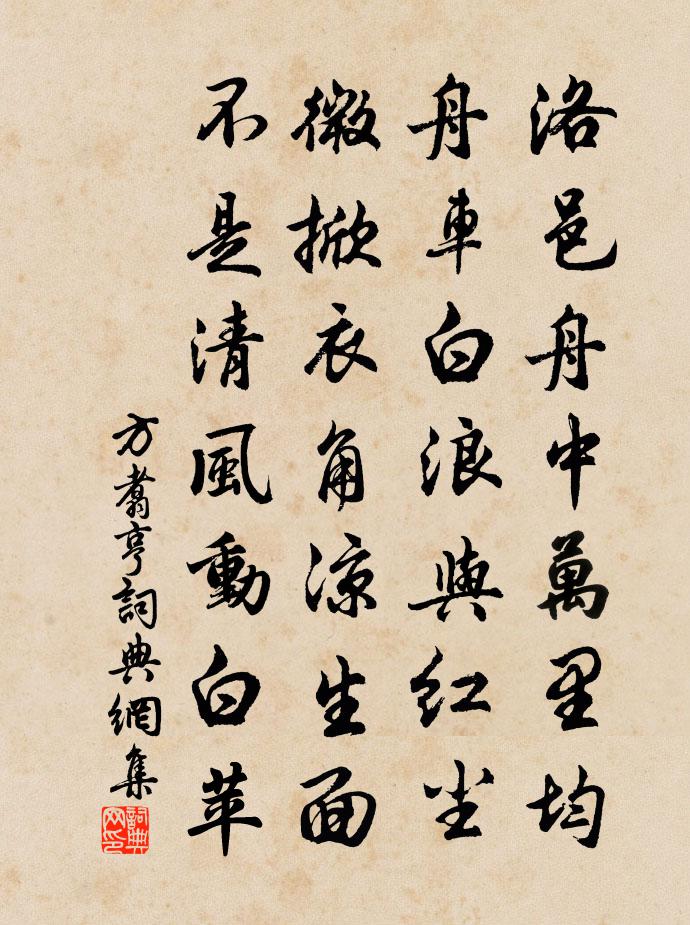 洛邑舟中萬里均
舟車白浪與紅尘
微掀衣角涼生面
不是清風動白苹
方翥亨詞典網集
詞典网印